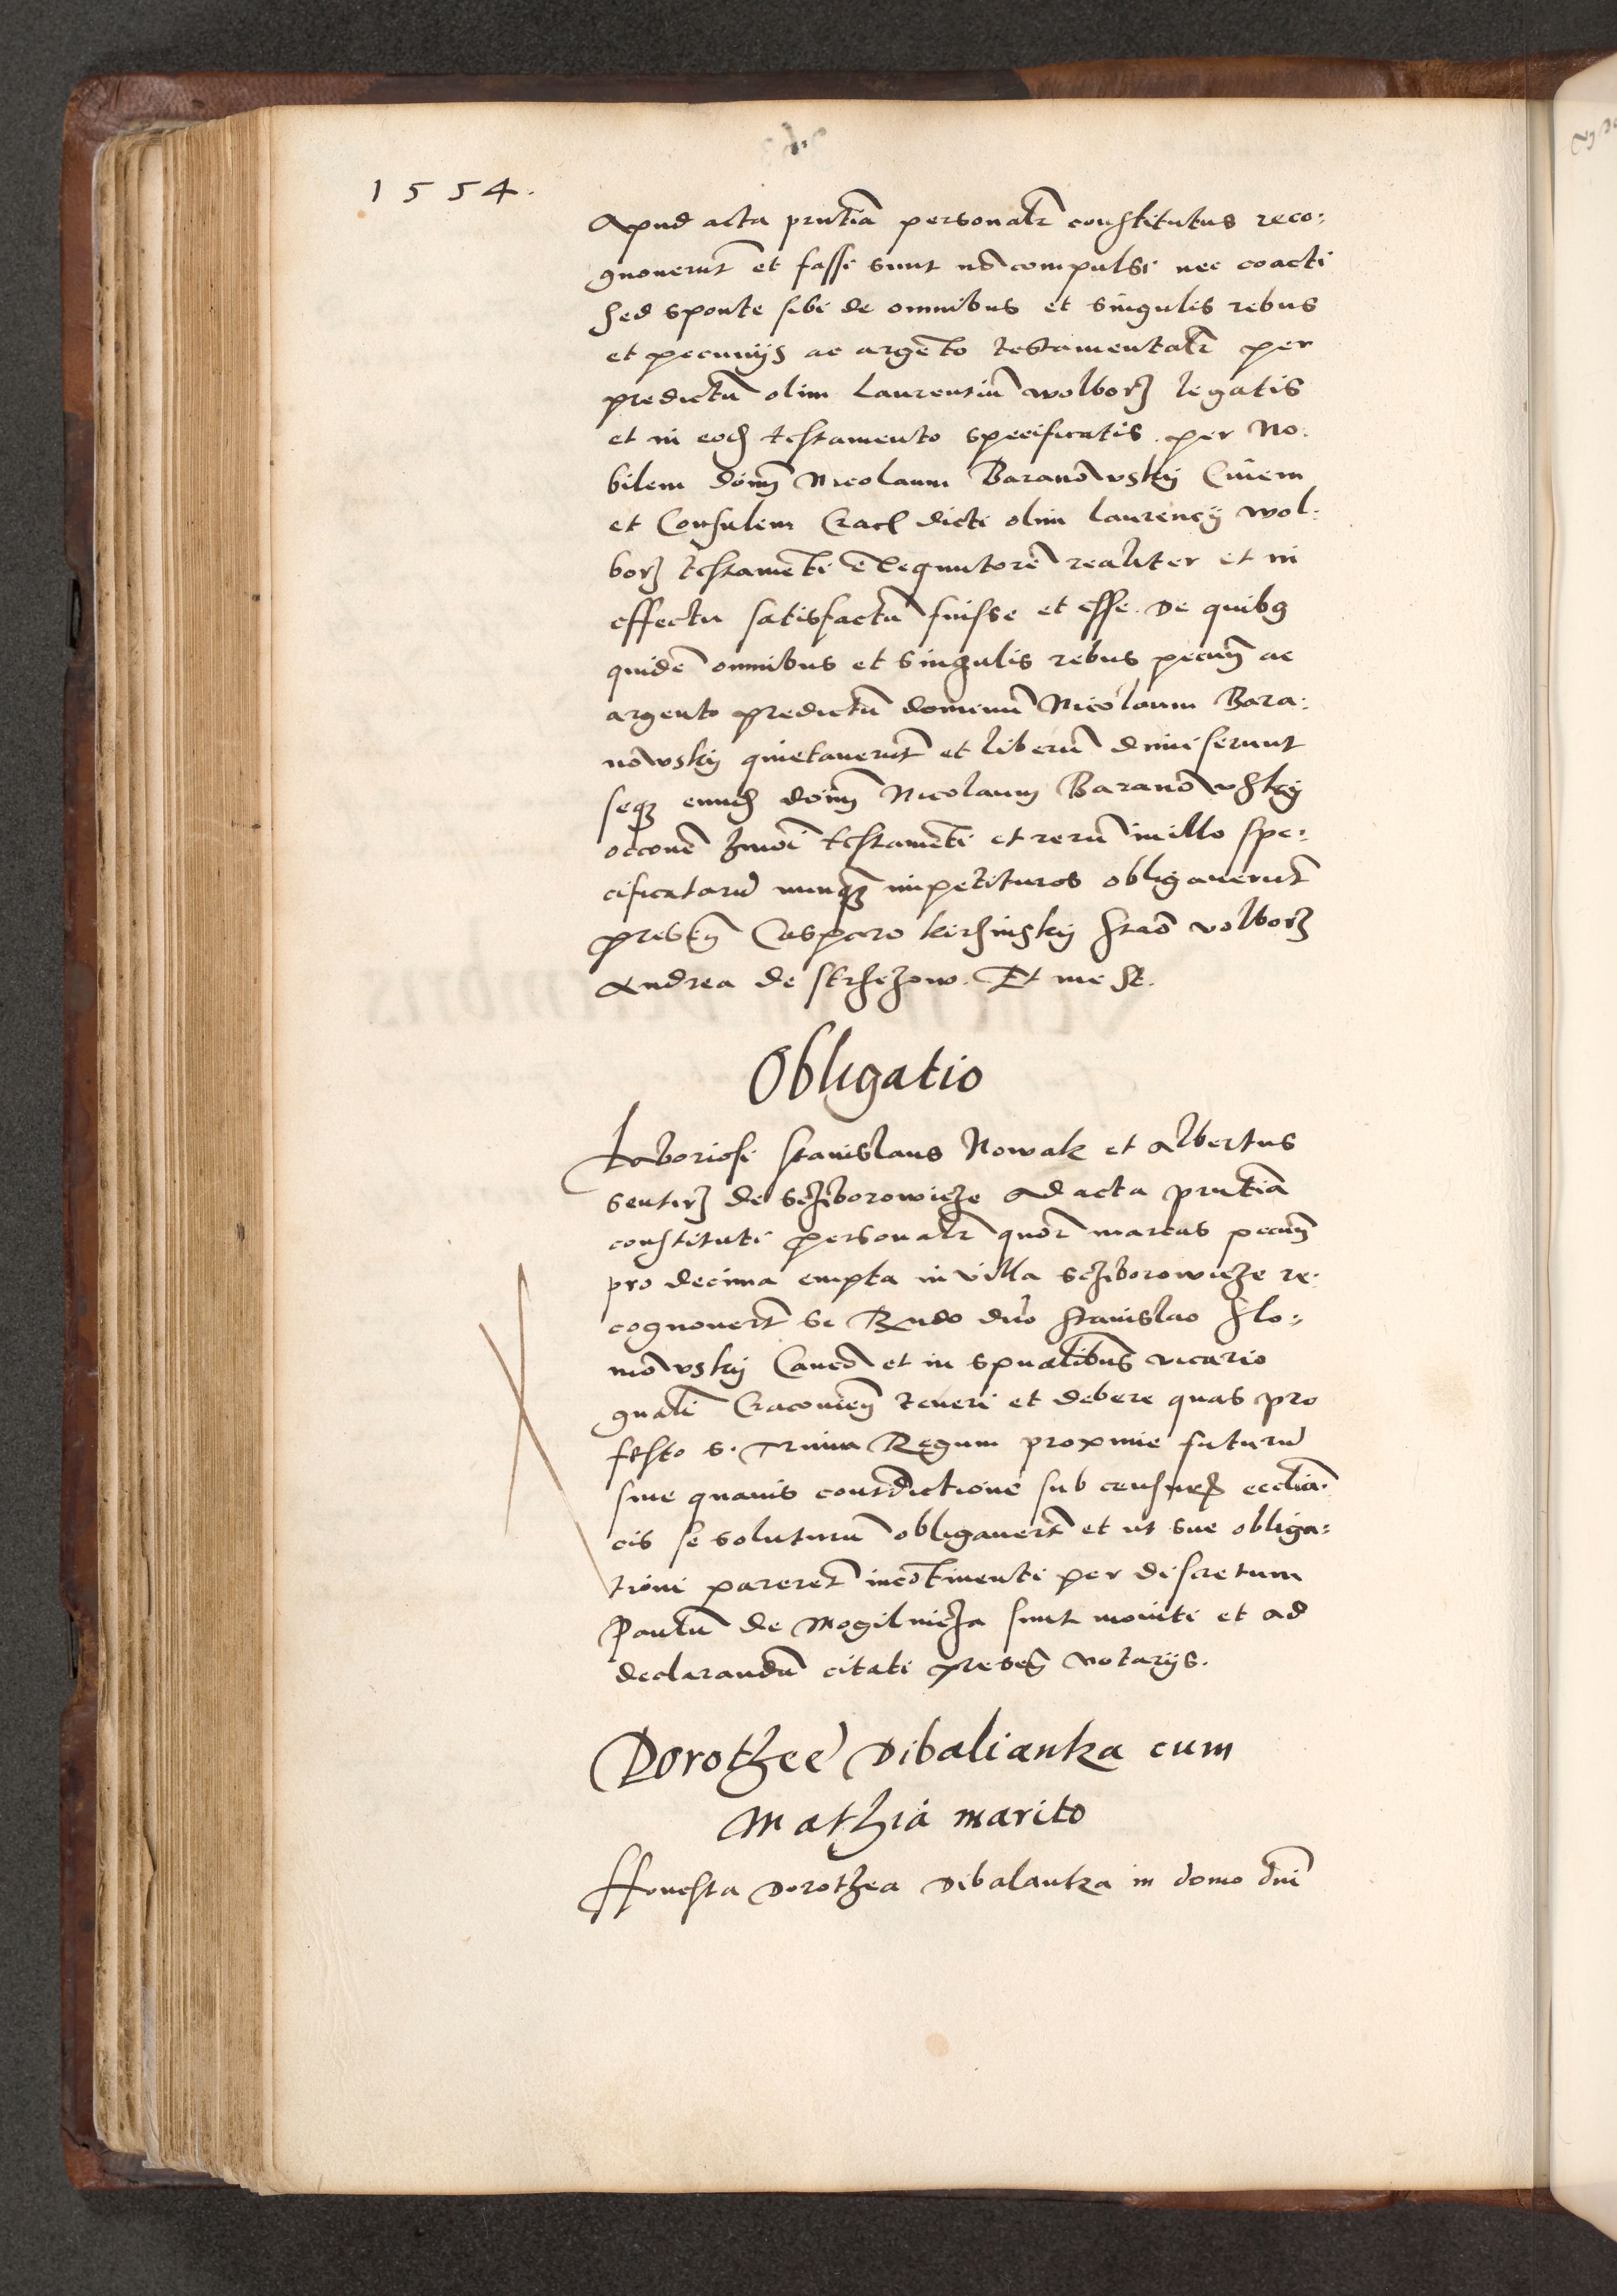 1554.
Apud acta prntia personalr constitutus reco:
gnoverunt et fassi sunt no compulsi nec coacti
sed sponte sibi de omnibus et singulis rebus
et pecunijs ac argento testamentalr per
predictu olim Laurentiu wolborz legatis
et in eod testamento specificatis per No:
bilem dom Nicolaum Baranowskij Civem
et Consulem Crac dicti olim Laurencij wol:
borz testamenti exequutore realiter et in
effectu satisfactu fuisse et esse. De quibus
quide omnibus et singulis rebus pecun ac
argento predictu dominu Nicolaum Bara:
nowskij quietaverunt et liberu dimiserunt
seq eund dom Nicolaum Baranowskij
occone hmoi testamenti et reru in illo spe:
cificataru nunq impetituros obligaverunt
presen Casparo Stao volborz
Andrea de Et me St.
Obligatio
Laboriosi Stanislaus Nowak et Albertus
de Scziborowicze ad acta prntia
constituti personalr quor marcas pecun
pro decima empta in villa Scziborowicze re:
cognovert se Rndo dno Stanislao Slo:
mowskij Canco et in spualibus vicario
gnali Cracovien teneri et debere quas pro
festo S. Trium Regum proxime futuru
sine quavis contradictione sub censuris ecclia:
cis se soluturu obligavert et ut sue obliga:
tioni pareret incotinenti per discretum
Paulu de Mogilnicza sunt moniti et ad
declarandu citati presen notarijs.
Dorothee Dibalianka cum
Mathia marito
Honesta Dorothea Dibalanka in domo dni